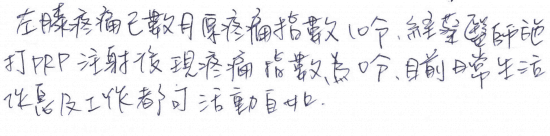 左膝疼痛已數月原疼痛指數10分,經葉醫師施
打PRP注射後現疼痛指數為0分,目前日常生活
作息及工作都可活動自如.